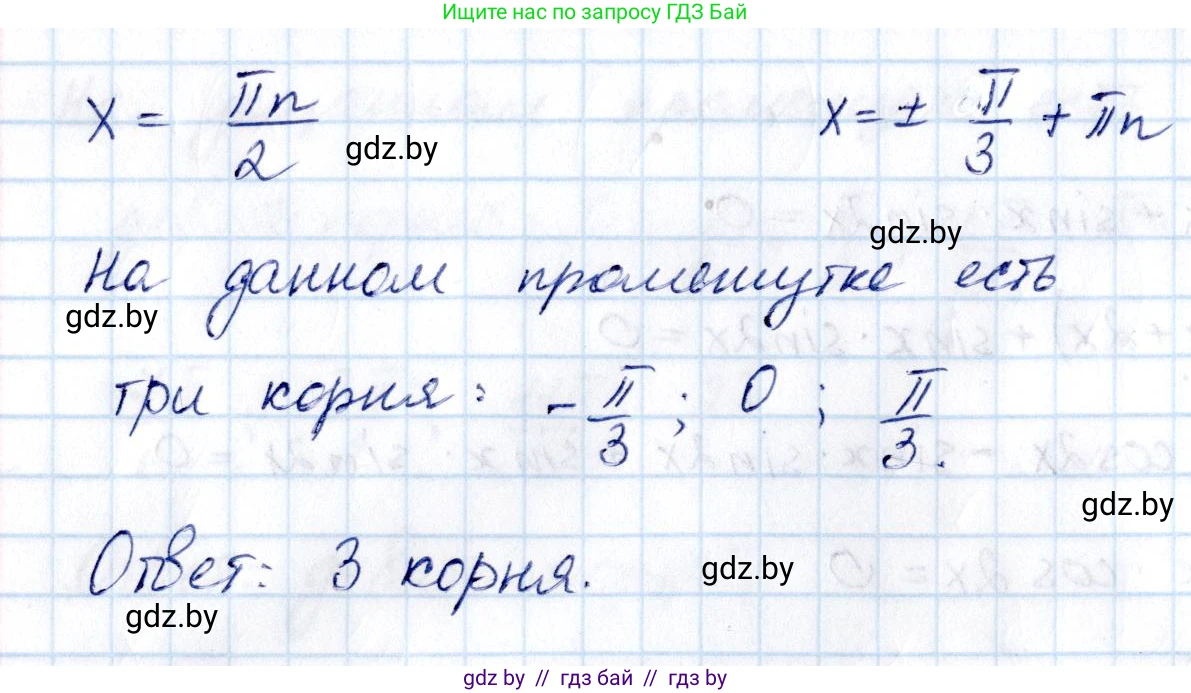 Ищите нас по запросу ГДЗ Бай
x = πn/2 gdz.by x = ± π/3 + πn
gdz.by
На данном промежутке есть
gdz.by
три корня: -π/3; 0; π/3.
gdz.by
Ответ: 3 корня. gdz.by
gdz.by
gdz.by // гдз бай // gdz.by